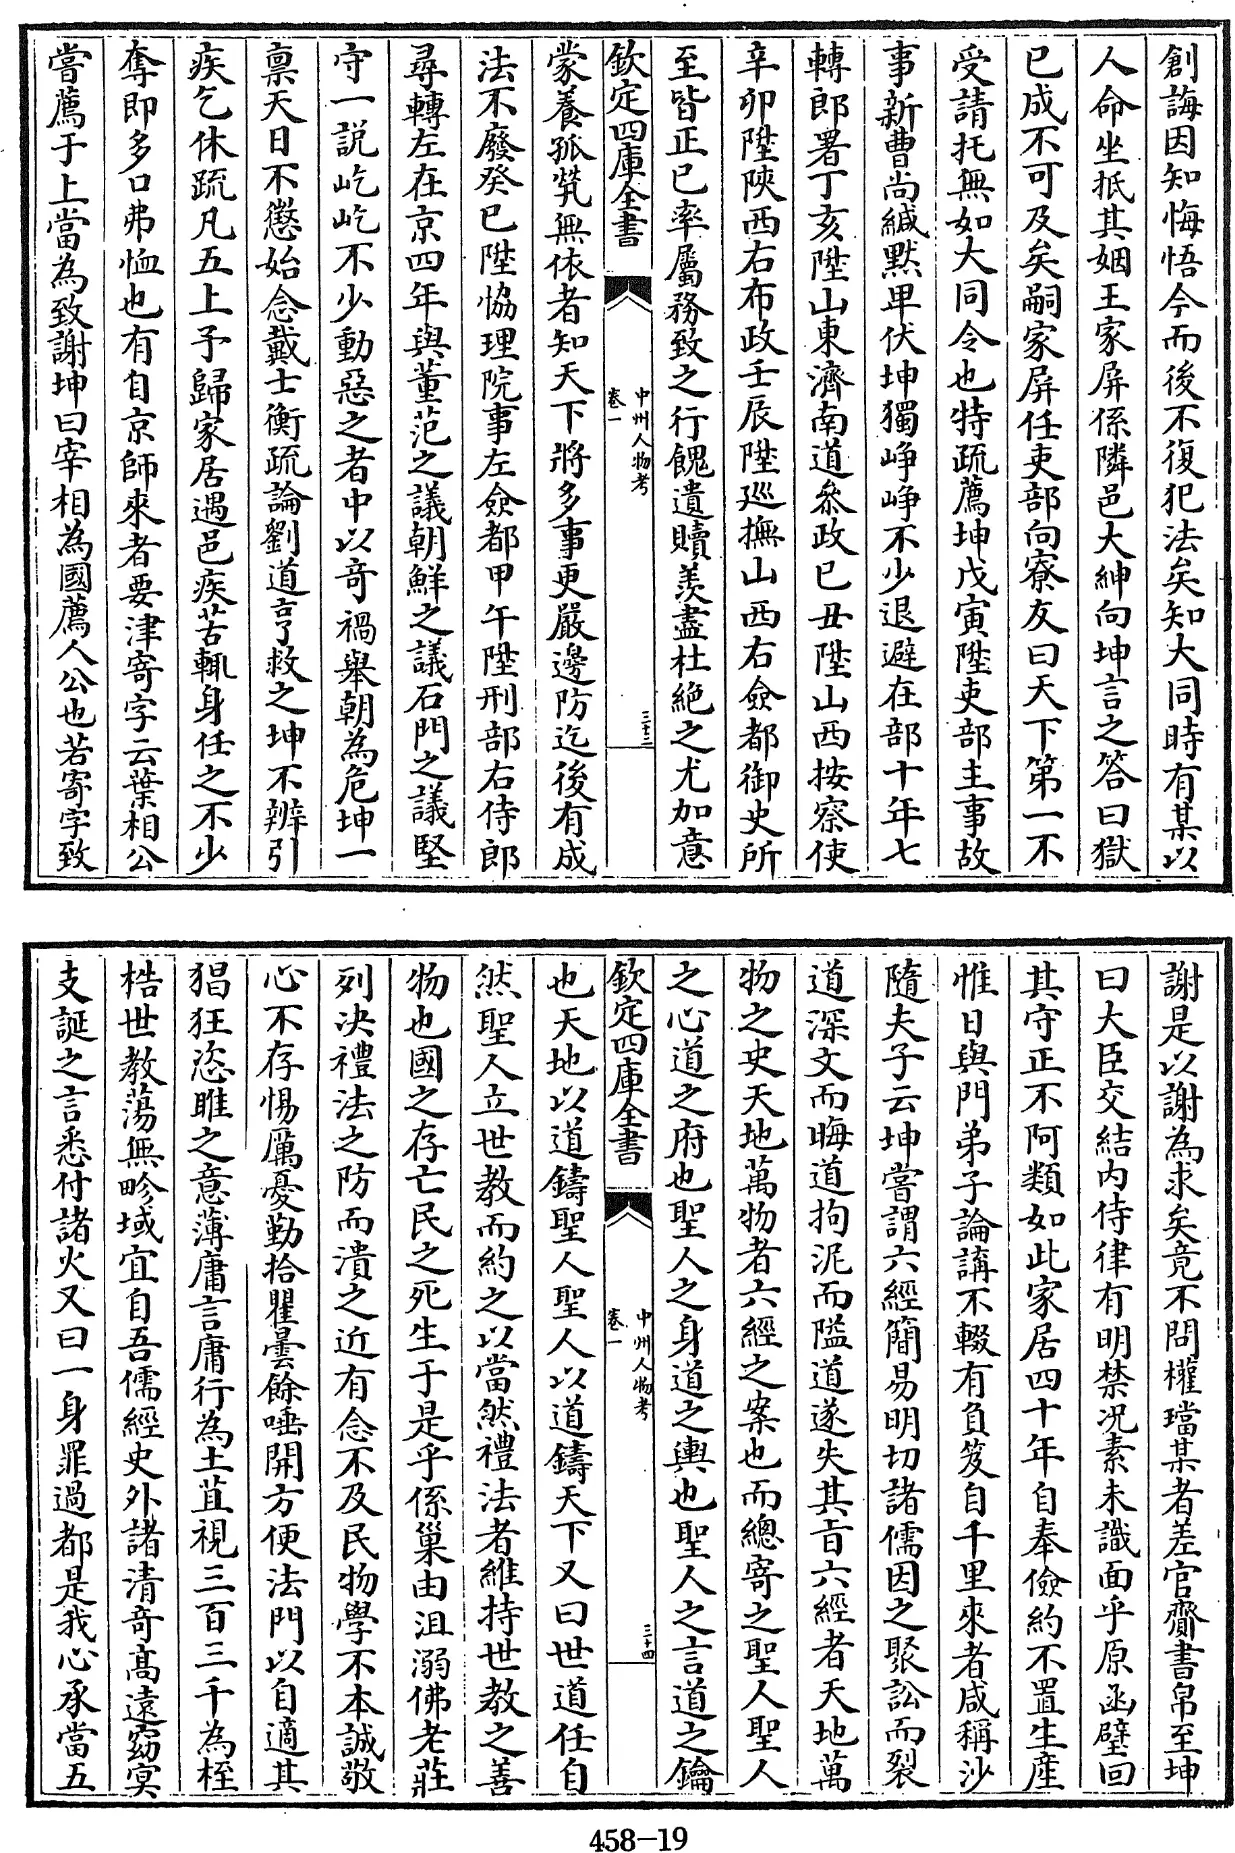 創誨因知悔悟今而後不復犯法矣知大同時有某以
人命坐抵其姻王家屏係隣邑大紳向坤言之答曰獄
已成不可及矣嗣家屏任吏部向寮友曰天下第一不
受請托無如大同令也特疏薦坤戊寅陞吏部主事故
事新曹尚緘黙卑伏坤獨崢崢不少退避在部十年七
轉郎署丁亥陞山東濟南道叅政已丑陞山西按察使
辛卯陞陜西右布政壬辰陞廵撫山西右僉都御史所
至皆正已率屬務致之行餽遺贖羡盡杜絶之尤加意
欽定四庫全書
中州人物考
卷一
三十三
蒙養孤煢無依者知天下將多事更嚴邊防迄後有成
法不廢癸已陞協理院事左僉都甲午陞刑部右侍郎
尋轉左在京四年與董范之議朝鮮之議石門之議堅
守一説屹屹不少動惡之者中以竒禍舉朝為危坤一
禀天日不懲始念戴士衡疏論劉道亨救之坤不辨引
疾乞休疏凡五上予歸家居遇邑疾苦輒身任之不少
奪即多口弗恤也有自京師來者要津寄字云葉相公
嘗薦于上當為致謝坤曰宰相為國薦人公也若寄字致
謝是以謝為求矣竟不問權璫某者差官齎書帛至坤
曰大臣交結内侍律有明禁况素未識面乎原函璧回
其守正不阿類如此家居四十年自奉儉約不置生産
惟日與門弟子論講不輟有負笈自千里來者咸稱沙
隨夫子云坤嘗謂六經簡易明切諸儒因之聚訟而裂
道深文而晦道拘泥而隘道遂失其旨六經者天地萬
物之史天地萬物者六經之案也而總寄之聖人聖人
之心道之府也聖人之身道之輿也聖人之言道之鑰
欽定四庫全書
中州人物考
卷一
三十四
也天地以道鑄聖人聖人以道鑄天下又曰世道任自
然聖人立世教而約之以當然禮法者維持世教之善
物也國之存亡民之死生于是乎係巢由沮溺佛老莊
列决禮法之防而潰之近有念不及民物學不本誠敬
心不存惕厲憂勤拾瞿曇餘唾開方便法門以自適其
猖狂恣睢之意薄庸言庸行為土苴視三百三千為桎
梏世教蕩無畛域宜自吾儒經史外諸清竒髙逺窈㝠
支誕之言悉付諸火又曰一身罪過都是我心承當五
458-19